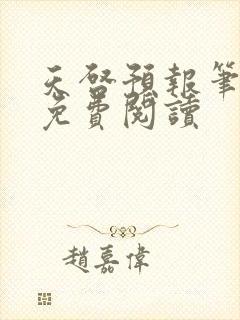 天啓預報筆
免費閱讀
趙嘉偉